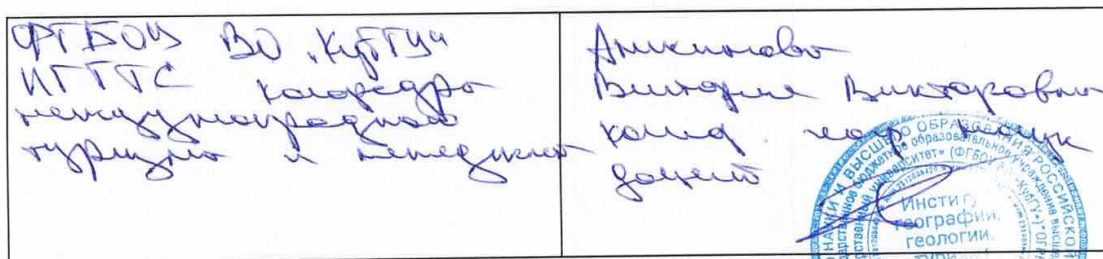 ФГБОУ ВО "КубГУ"
ИГГТС кафедра
международного
туризма и менеджмент
Аникинова
Виктория Викторовна
канд. геогр наук
доцент
НАУКИ И ВЫСШЕГО ОБРАЗОВАНИЯ РОССИЙСКОЙ
Институ
географии,
геологии,